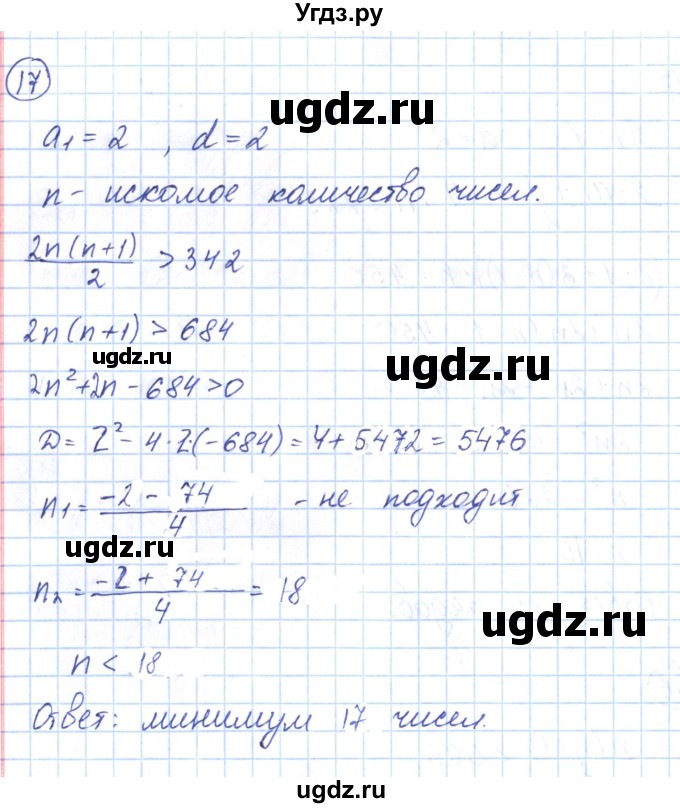 Угдз.ру
17
ugdz.ru
a₁ = 2 , d = 2
n - искомое количество чисел.
ugdz.ru
2n(n+1)/2 > 342
2n(n+1) > 684
ugdz.ru
ugdz.ru
2n²+2n-684>0
D = 2² - 4·2·(-684) = 4 + 5472 = 5476
n₁ = (-2 - 74)/4 - не подходит
ugdz.ru
n₂ = (-2 + 74)/4 = 18
ugdz.ru
n < 18
Ответ: минимум 17 чисел.
ugdz.ru
Угдз.ру